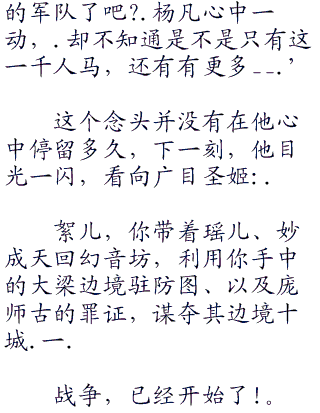 的军队了吧?.杨凡心中一
动，.却不知通是不是只有这
一千人马，还有有更多--.’
这个念头并没有在他心
中停留多久，下一刻，他目
光一闪，看向广目圣姬:.
絮儿，你带着瑶儿、妙
成天回幻音坊，利用你手中
的大梁边境驻防图、以及庞
师古的罪证，谋夺其边境十
城.一.
战争，已经开始了!。